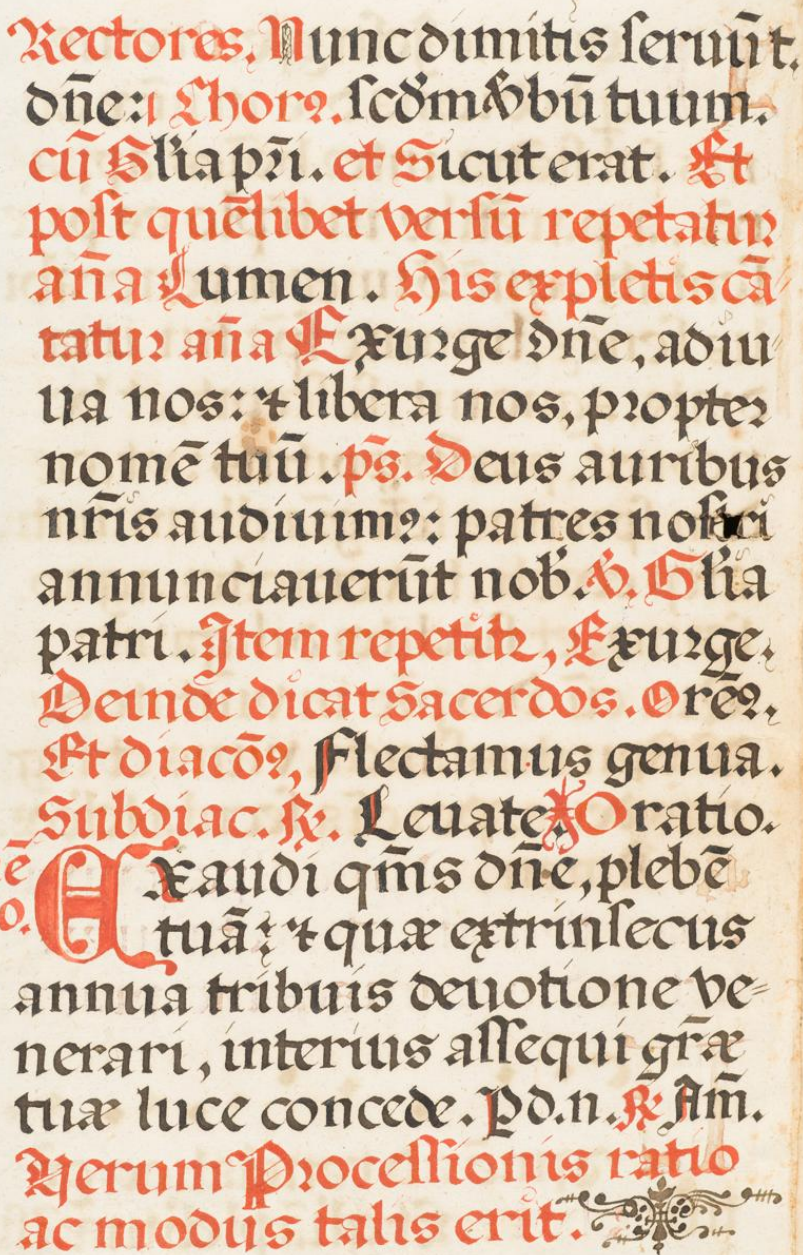 Rectores. Nunc dimitis seruũt.
dñe: Chorꝰ. scd̃m v̓bũ tuum.
cũ Gl̃ia pr̃i. et Sicut erat. Et
post quẽlibet versũ repetatur
añа Lumen. His expletis cã
tatur aña Exurge dñe, adiu
ua nos: ⁊ libera nos, propter
nomẽ tuũ. ps̃. Deus auribus
nr̃is audiuimꝰ: patres nostri
annunciauerũt nob̓. ℣. Gl̃ia
patri. Item repetitꝛ, Exurge.
Deinde dicat Sacerdos. Orẽꝰ.
Et diacõꝰ, Flectamus genua.
Subdiac. ℟. Leuate. Oratio.
Exaudi qm̃s dñe, plebẽ
tuã: ⁊ quæ extrinsecus
annua tribuis deuotione ve=
nerari, interius assequi gr̃æ
tuæ luce concede. P d. n. ℟ Am̃.
Verum Processionis ratio
ac modus talis erit.